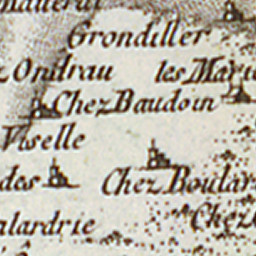 Grondiller
Ondrau les Marie
Chez Baudoin
Viselle
des Chez Boular
alardrie Chez